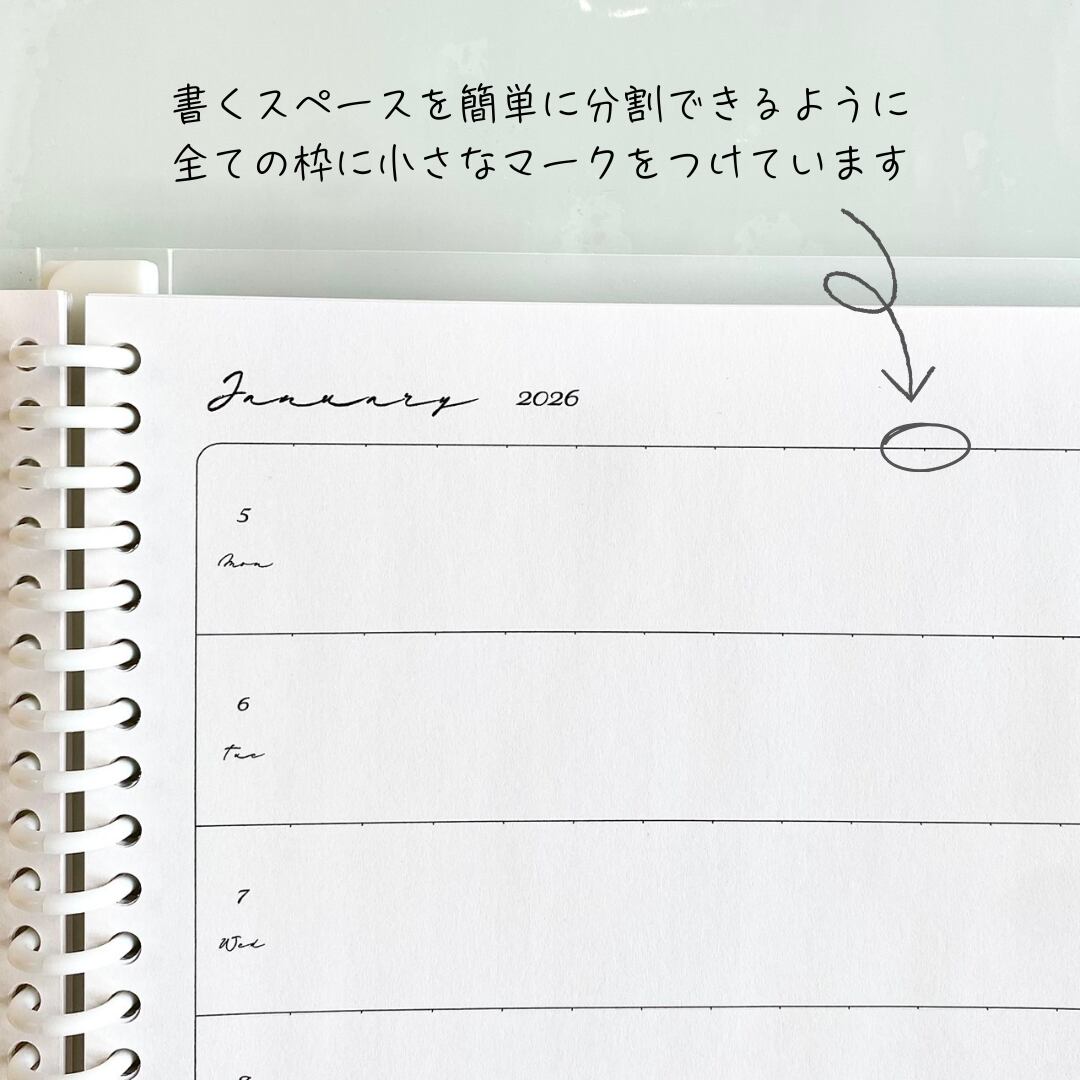 書くスペースを簡単に分割できるように
全ての枠に小さなマークをつけています
January 2026
5
Mon
6
Tue
7
Wed